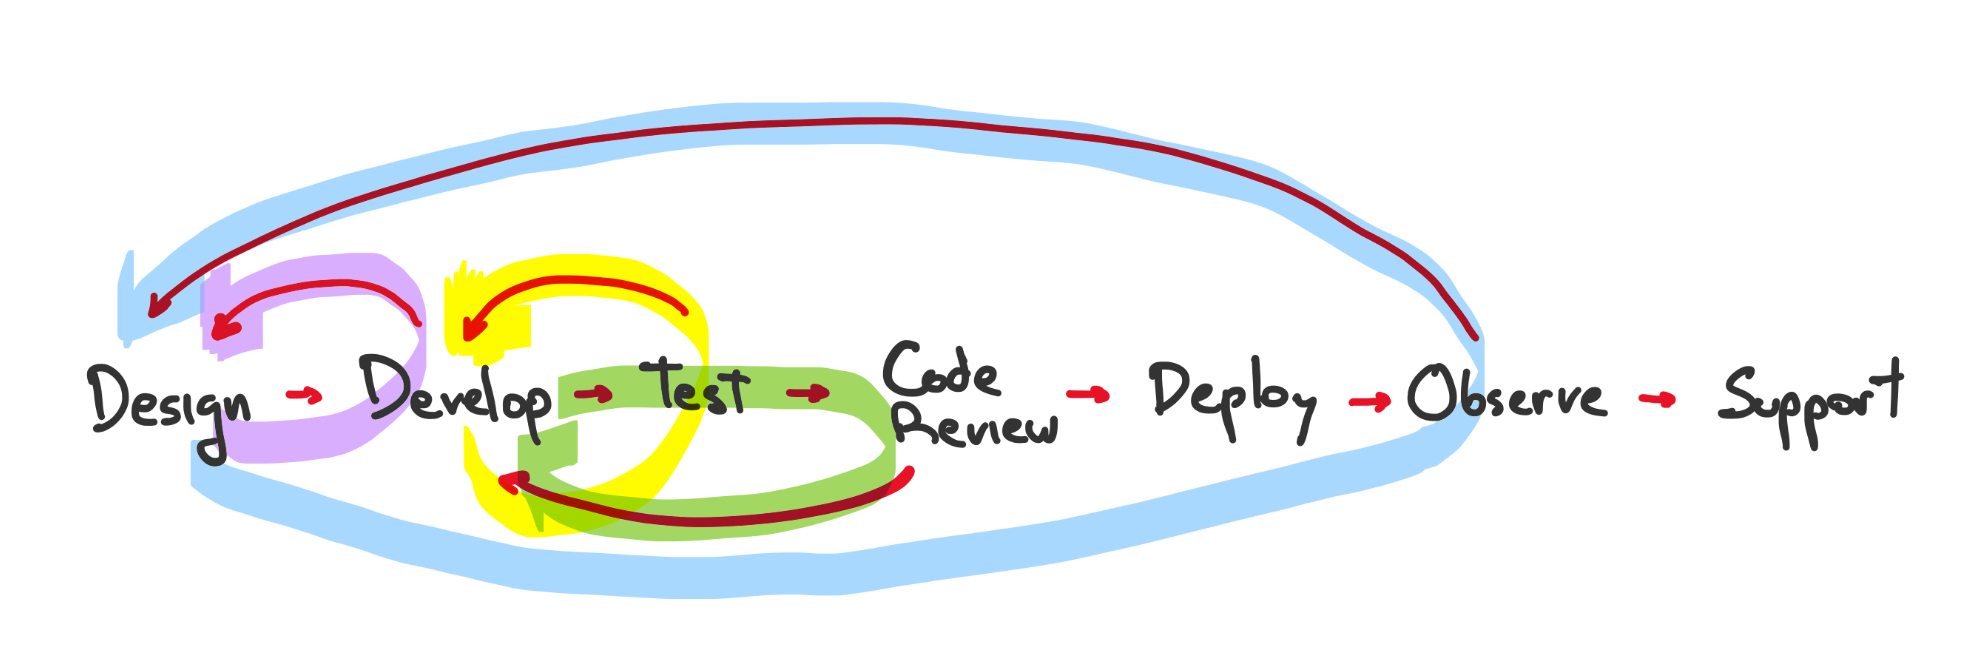 Design → Develop → Test → Code Review → Deploy → Observe → Support